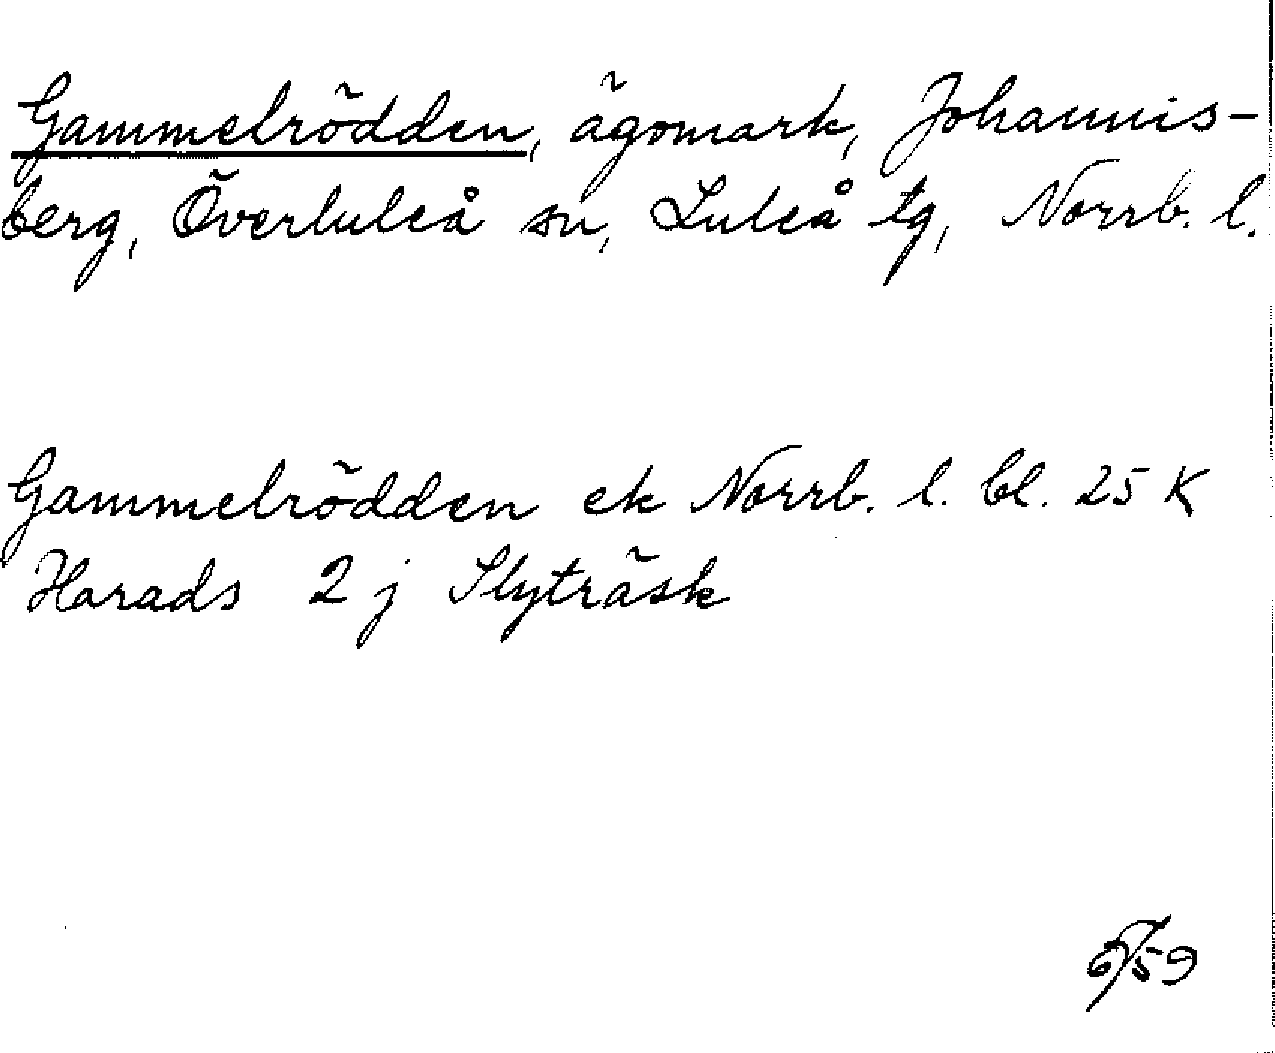 Gammelrödden, ägomark, Johannis-
berg, Överluleå sn, Luleå tg, Norrb. l.
Gammelrödden ek Norrb. l. bl. 25 K
Harads 2 j Slyträsk
6/59